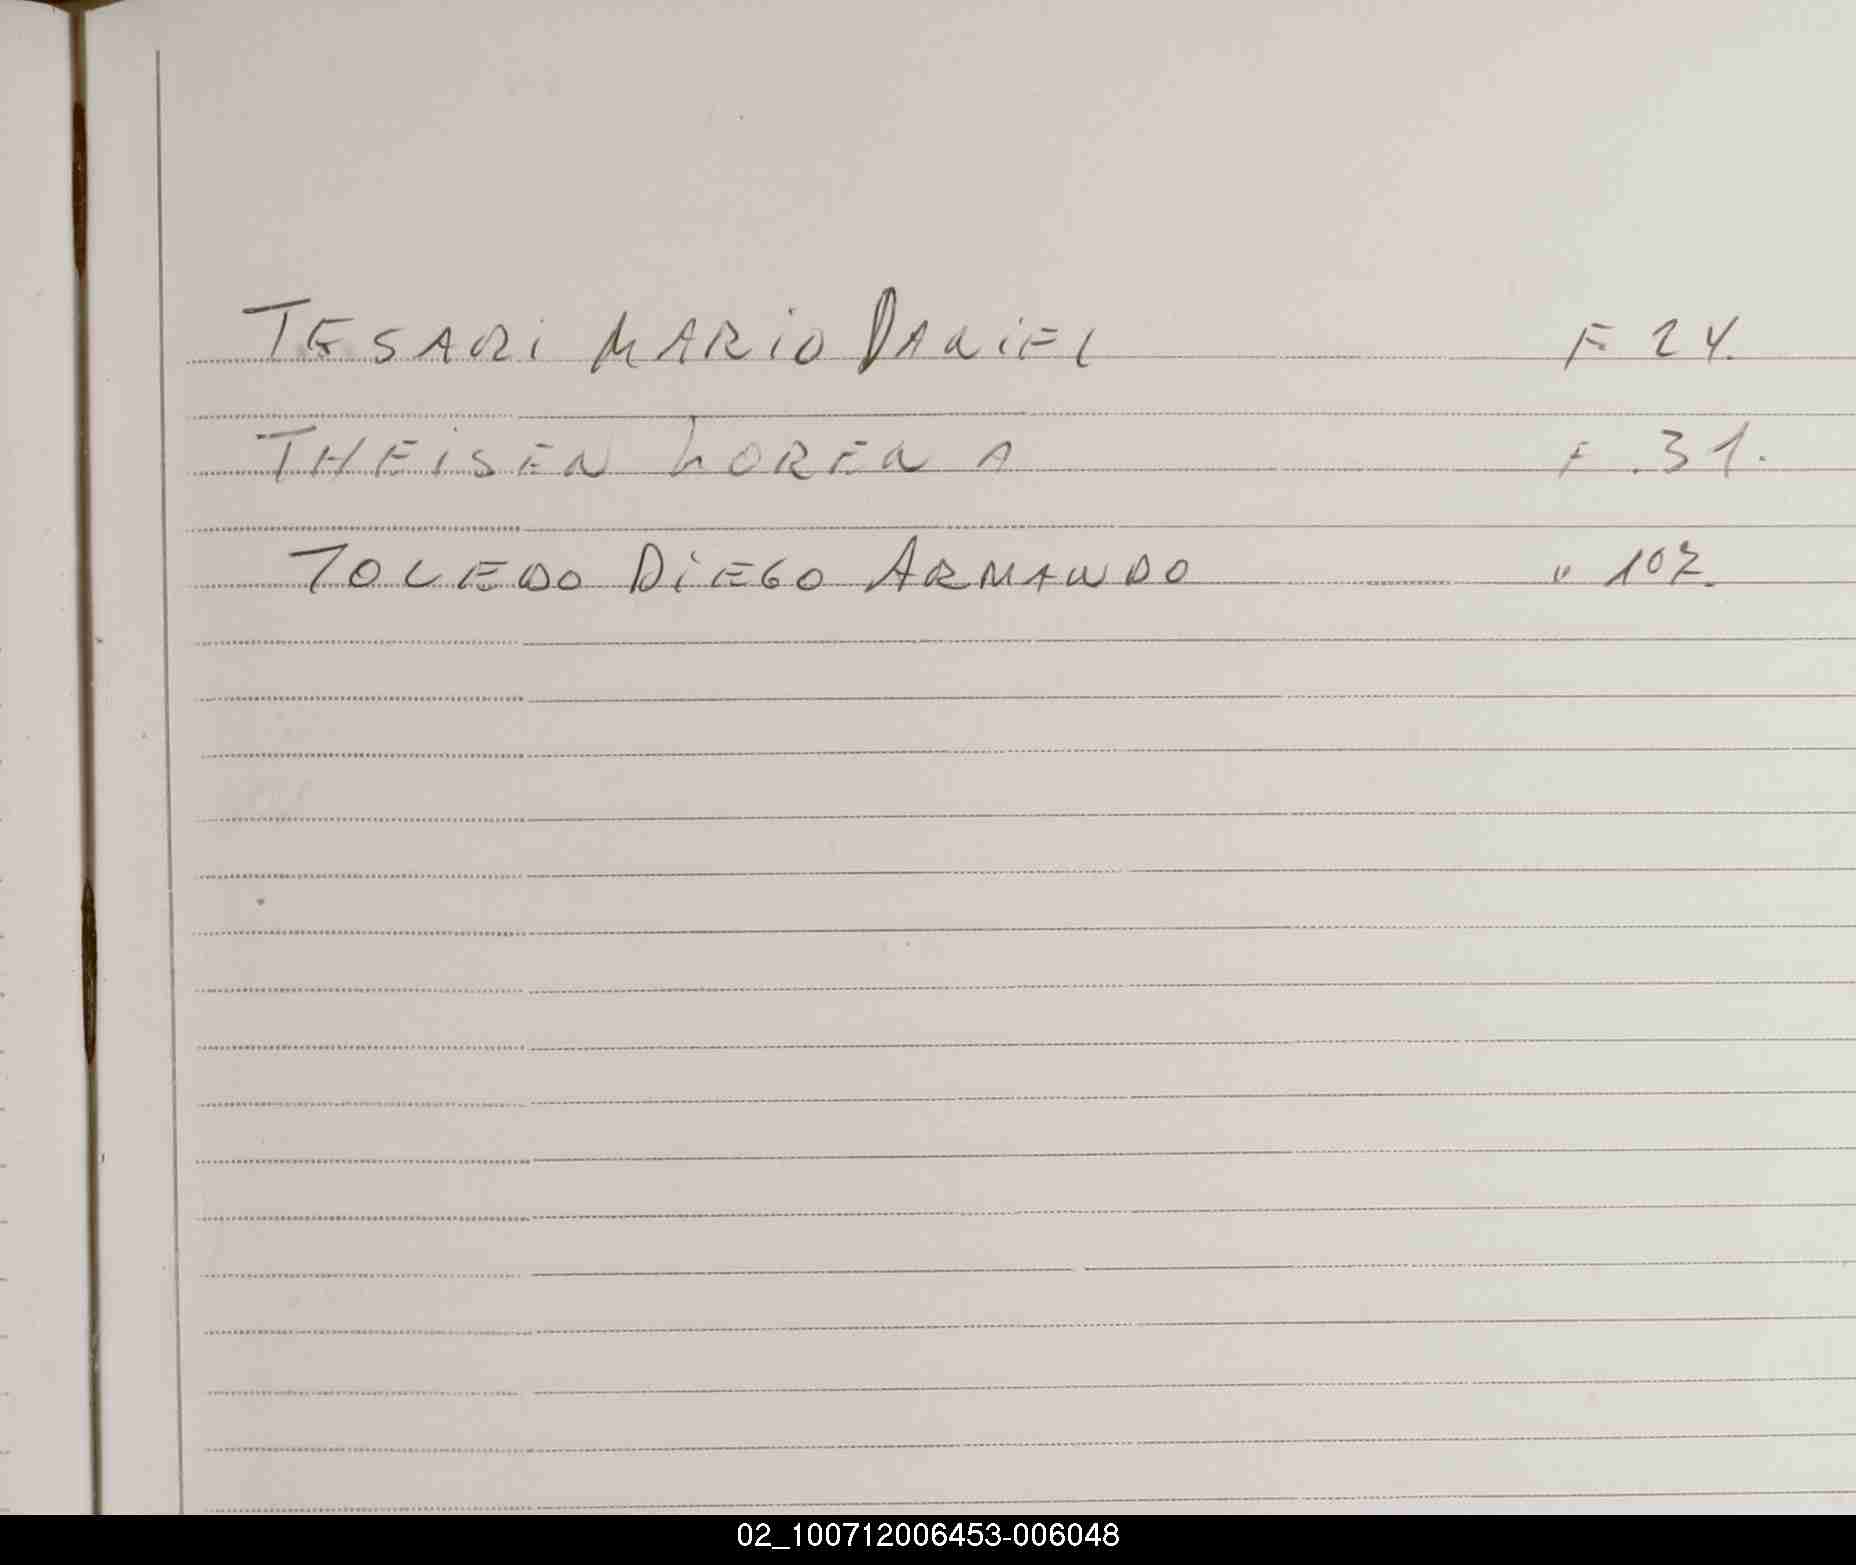 TESARI MARIO DANIEL F 24.
THEISEN LOREN A F. 31.
TOLEDO DIEGO ARMANDO " 102.
02_100712006453-006048